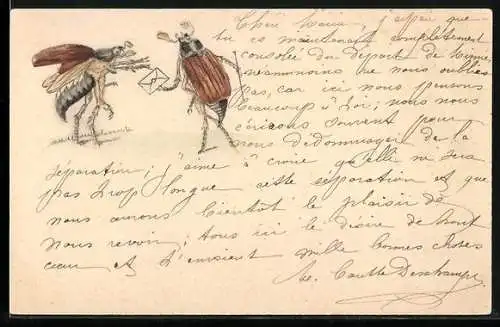 Chère Maria, j'espère que
tu es maintenant complètement
consolée du départ de
néanmoins ne nous oublies
pas, car ici nous pensons
beaucoup à toi; nous nous
écrirons souvent pour
nous dédommager de la
séparation; j'aime à croire qu'elle ne sera
pas trop longue cette séparation et que
nous aurons bientôt le plaisir de
nous revoir; tous ici le désire de tout
cœur et t'envoient mille bonnes choses
Deschamps